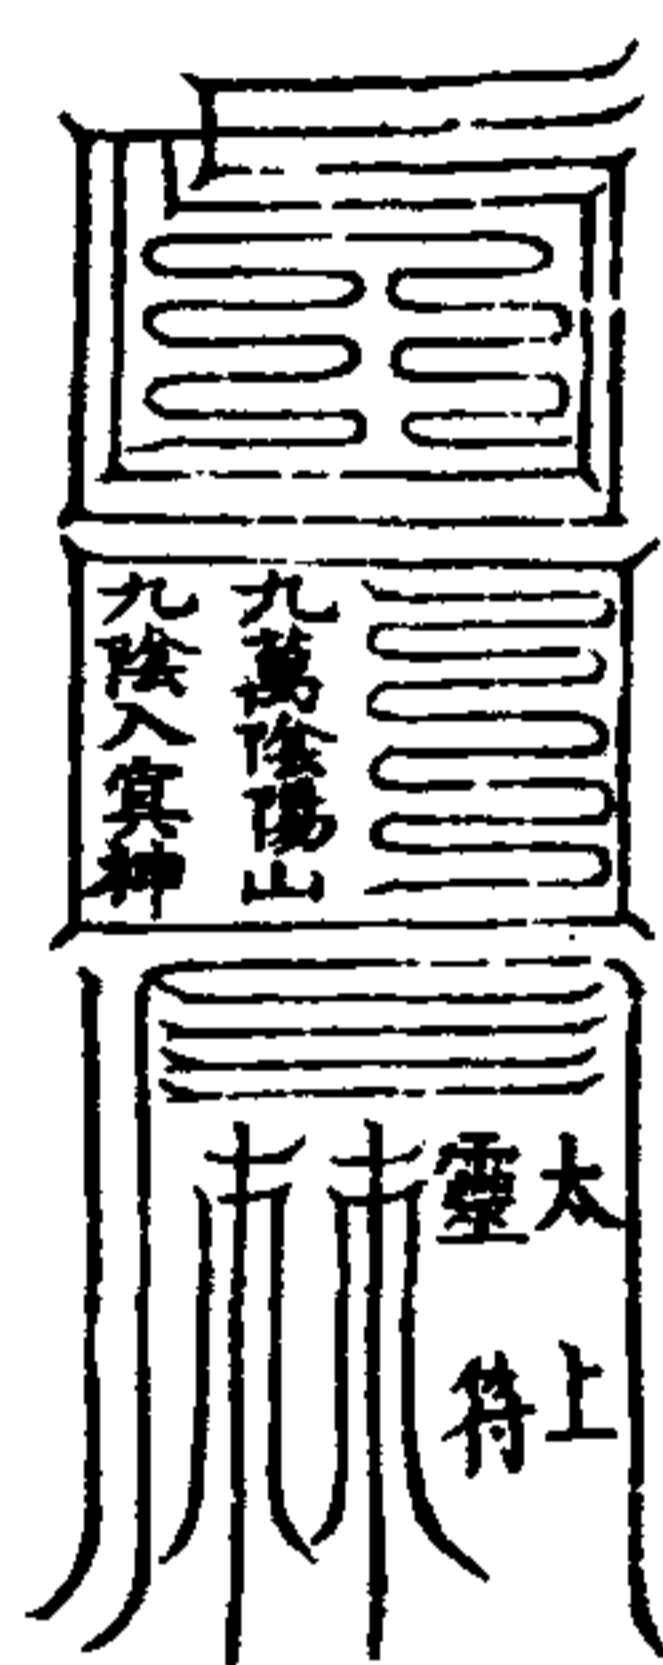 九萬陰陽山
九陰入冥神
太上
靈符